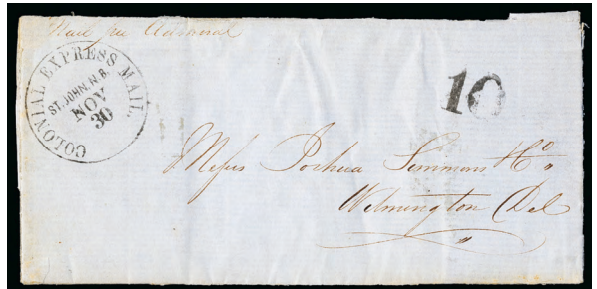 Mail per Admiral
COLONIAL EXPRESS MAIL.
ST. JOHN. N.B.
NOV
30
10
Mess Joshua Simmons & Co
Wilmington Del